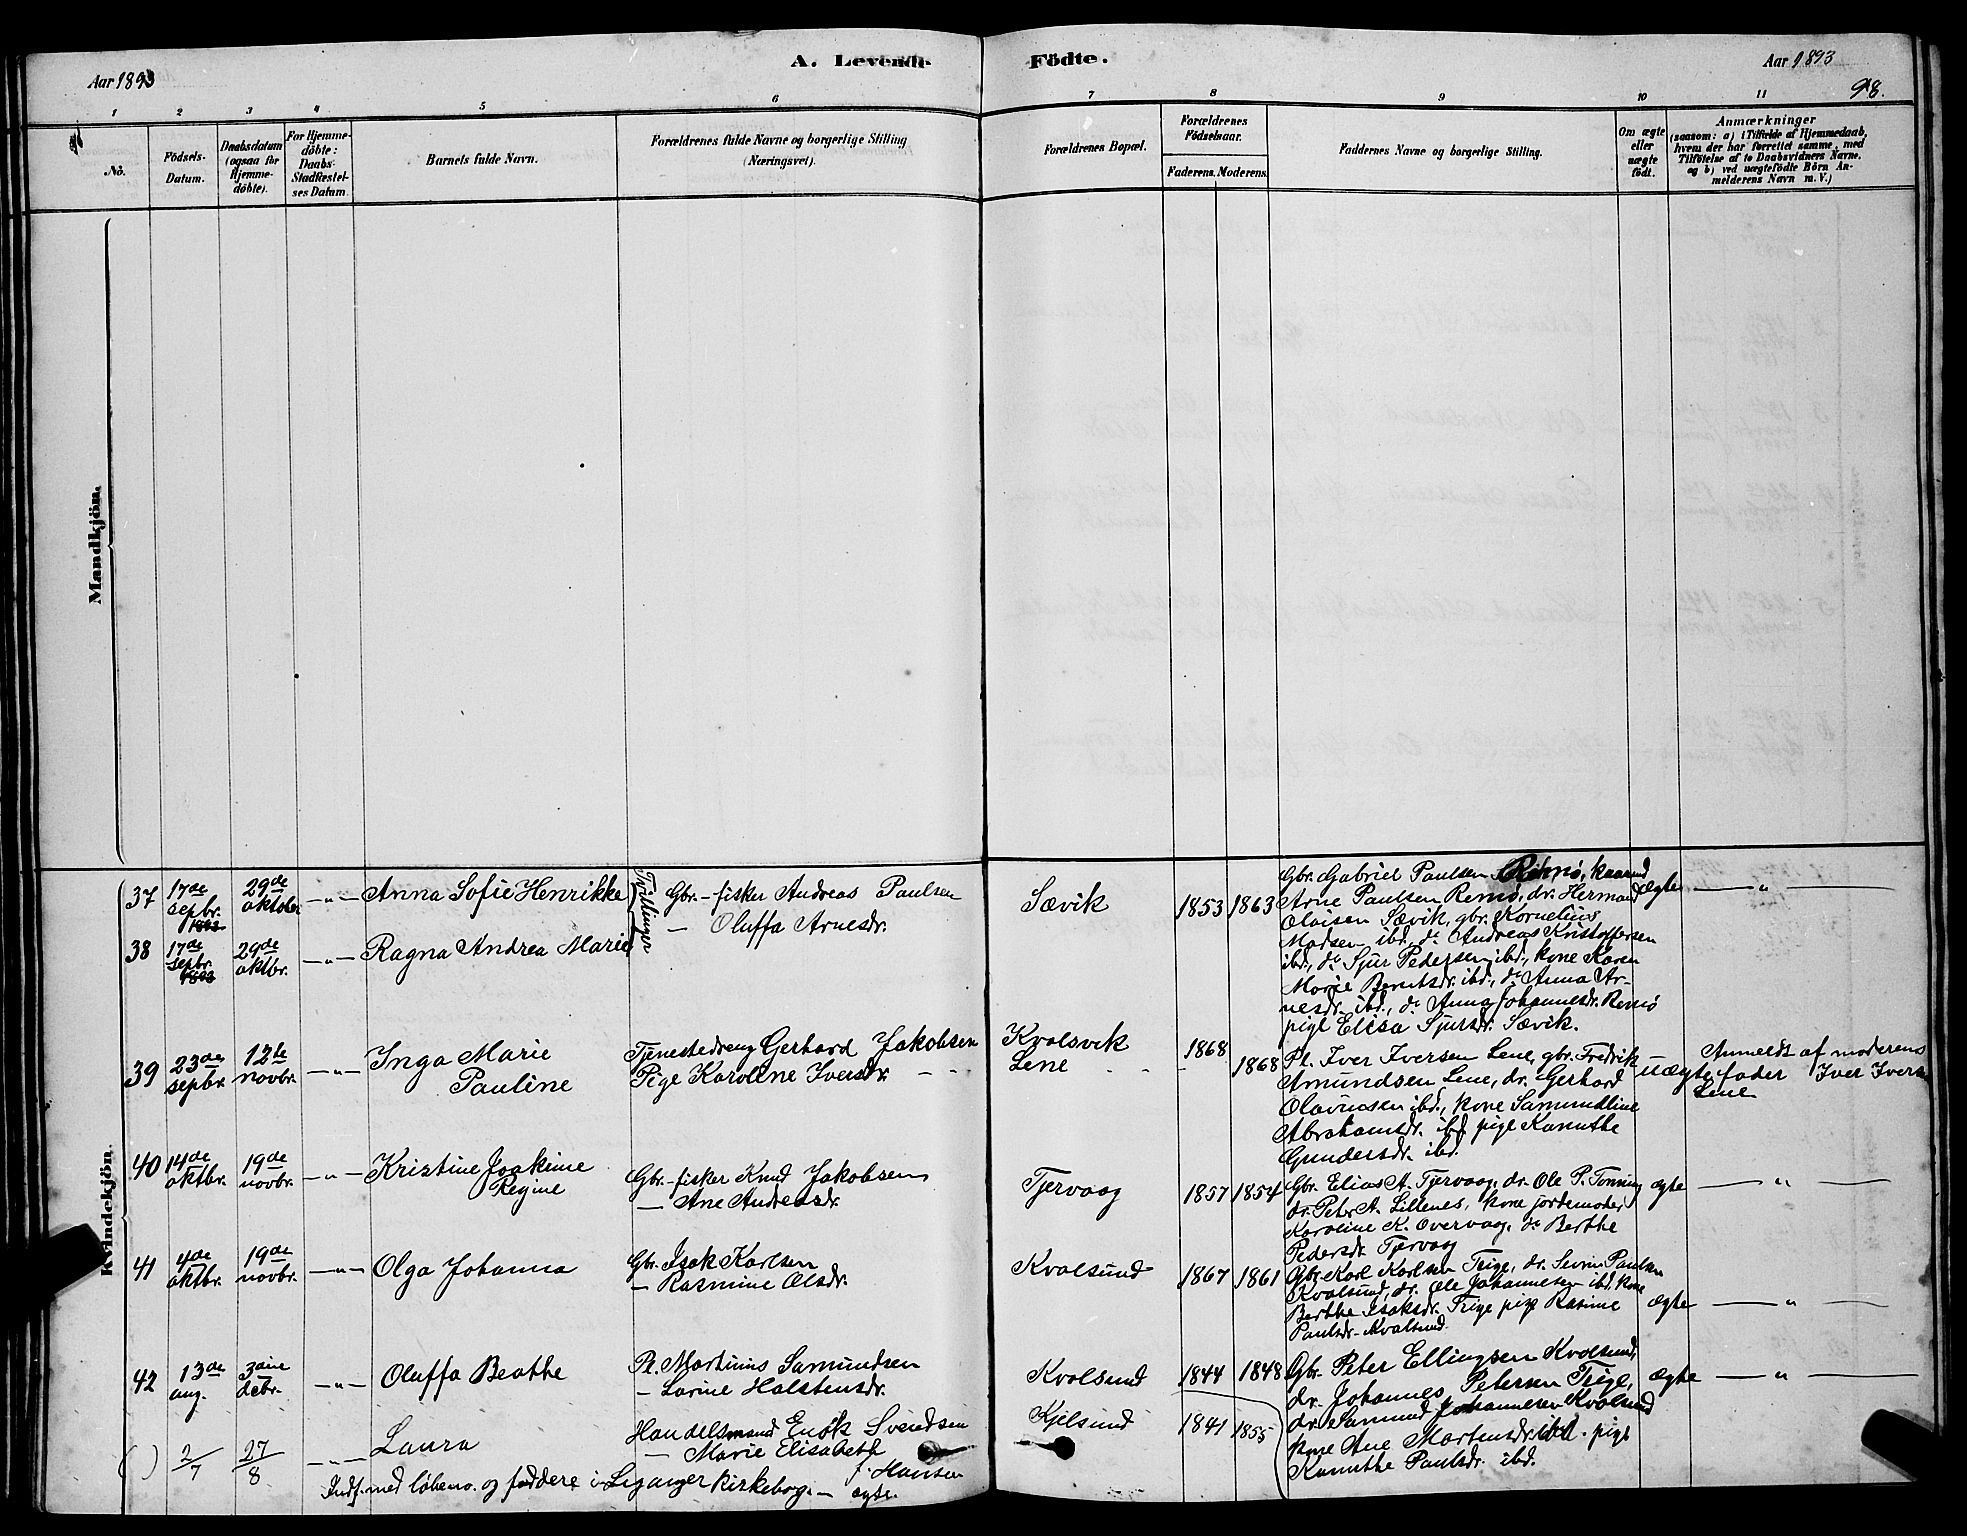 Aar 1893
A. Levende
Födte.
Aar 1893
98.
1 2 3 4 5 6 7 8 9 10 11
No.
Födsels-
Datum.
Daabsdatum
(ogsaa for
Hjemme-
döbte).
For Hjemme-
döbte:
Daabs-
Stadfæstel-
ses Datum.
Barnets fulde Navn.
Forældrenes fulde Navne og borgerlige Stilling
(Næringsvei).
Forældrenes Bopæl.
Forældrenes
Födselsaar.
Faderens. Moderens.
Faddernes Navne og borgerlige Stilling.
Om ægte
eller
uægte
födt.
Anmærkninger
(saasom: a) i Tilfælde af Hjemmedaab,
hvem der har forrettet samme, med
Tilföielse af to Daabsvidners Navne,
og b) ved uægtefödte Börn An-
melderens Navn m. V.)
Mandkjön.
Kvindekjön.
37
17de
sepbr.
1893
29de
oktober
—„—
Anna Sofie Henrikke
Tvillinger
Gbr.-fisker Andreas Paulsen
— Oluffa Arnesdr.
Sævik
1853 1863
Gbr. Gabriel Paulsen Remö, kaarmd
Arne Paulsen Remö, dr. Hermand
Olaisen Sævik, gbr. Kornelius
Madsen ibd., do Andreas Kristoffersen
ibd., do Sjur Pedersen ibd., kone Karen
Marie Berntsdr. ibd., do Anna Ar-
nesdr. ibd., do Anna Johannesdr. Remö
pige Elisa Sjursdr. Sævik.
ægte
— „ —
38
17de
sepbr.
1893
29de
oktbr.
—„—
Ragna Andrea Marie
39
23de
sepbr.
12te
novbr.
—„—
Inga Marie
Pauline
Tjenestedreng Gerhard Jakobsen
Pige Karoline Iversdr.
Kvalsvik
Lene
1868
1868
Pl. Iver Iversen Lene, gbr. Fredrik
Amundsen Lene, dr. Gerhard
Olavusen ibd., kone Samundline
Abrahamsdr. ibd. pige Kanuthe
Gundersdr. ibd.
uægte
Anmeldt af moderens
fader Iver Iversen
Lene
40
14de
oktbr.
19de
novbr.
—„—
Kristine Joakime
Regine
Gbr.-fisker Knud Jakobsen
— Ane Andreasdr.
Tjervaag
1857 1854
Gbr. Elias A. Tjervaag, dr. Ole P. Tonning
dr. Peter A. Lillenes, kone jordemoder
Karoline K. Overvaag, do Berthe
Pedersdr. Tjervaag
ægte
— „ —
41
4de
oktbr.
19de
novbr.
—„—
Olga Johanna
Gbr. Isak Karlsen
— Rasmine Olsdr.
Kvalsund
1867 1861
Gbr. Karl Karlsen Teige, dr. Severin Paulsen
Kvalsund, dr. Ole Johannesen ibd. kone
Berthe Isaksdr. Teige pige Rasine
Paulsdr. Kvalsund.
ægte
— „ —
42
13de
aug.
3die
debr.
—„—
Oluffa Beathe
Pl. Martinus Samundsen
— Lovine Halstensdr.
Kvalsund
1844 1848
Gbr. Peter Ellingsen Kvalsund,
dr. Johannes Petersen Teige,
dr. Samund Johannesen Kvalsund
kone Ane Martensdr. ibd. pige
Kanuthe Paulsdr. ibd.
ægte
— „ —
( )
2/7
27/8
—„—
Laura
Handelsmand Enok Svendsen
— Marie Elisabeth
f. Hansen
Kjelsund
1841 1855
Indf. med löbeno. og faddere i Leganger kirkebog. — ægte.